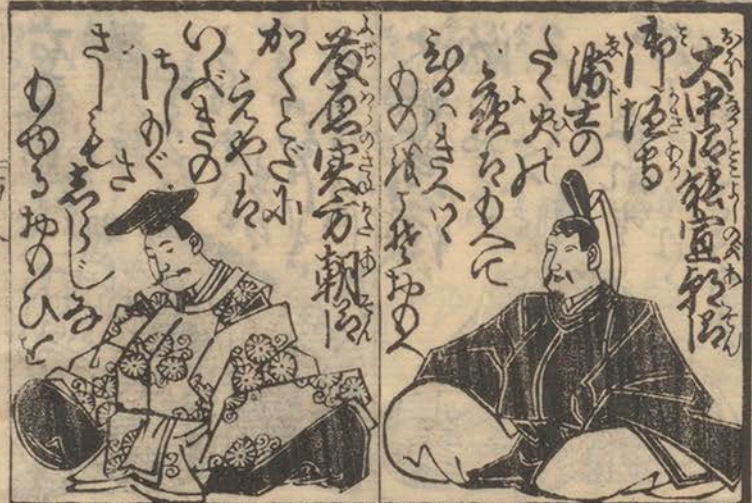 大中臣能宣朝臣
御垣守
衛士の
たく火の
夜はもえて
ひるはきえつ
ものをこそおもへ
藤原実方朝臣
かくとだに
えやは
いぶきの
さしもぐ
さ
さしもしらじな
もゆるおもひを